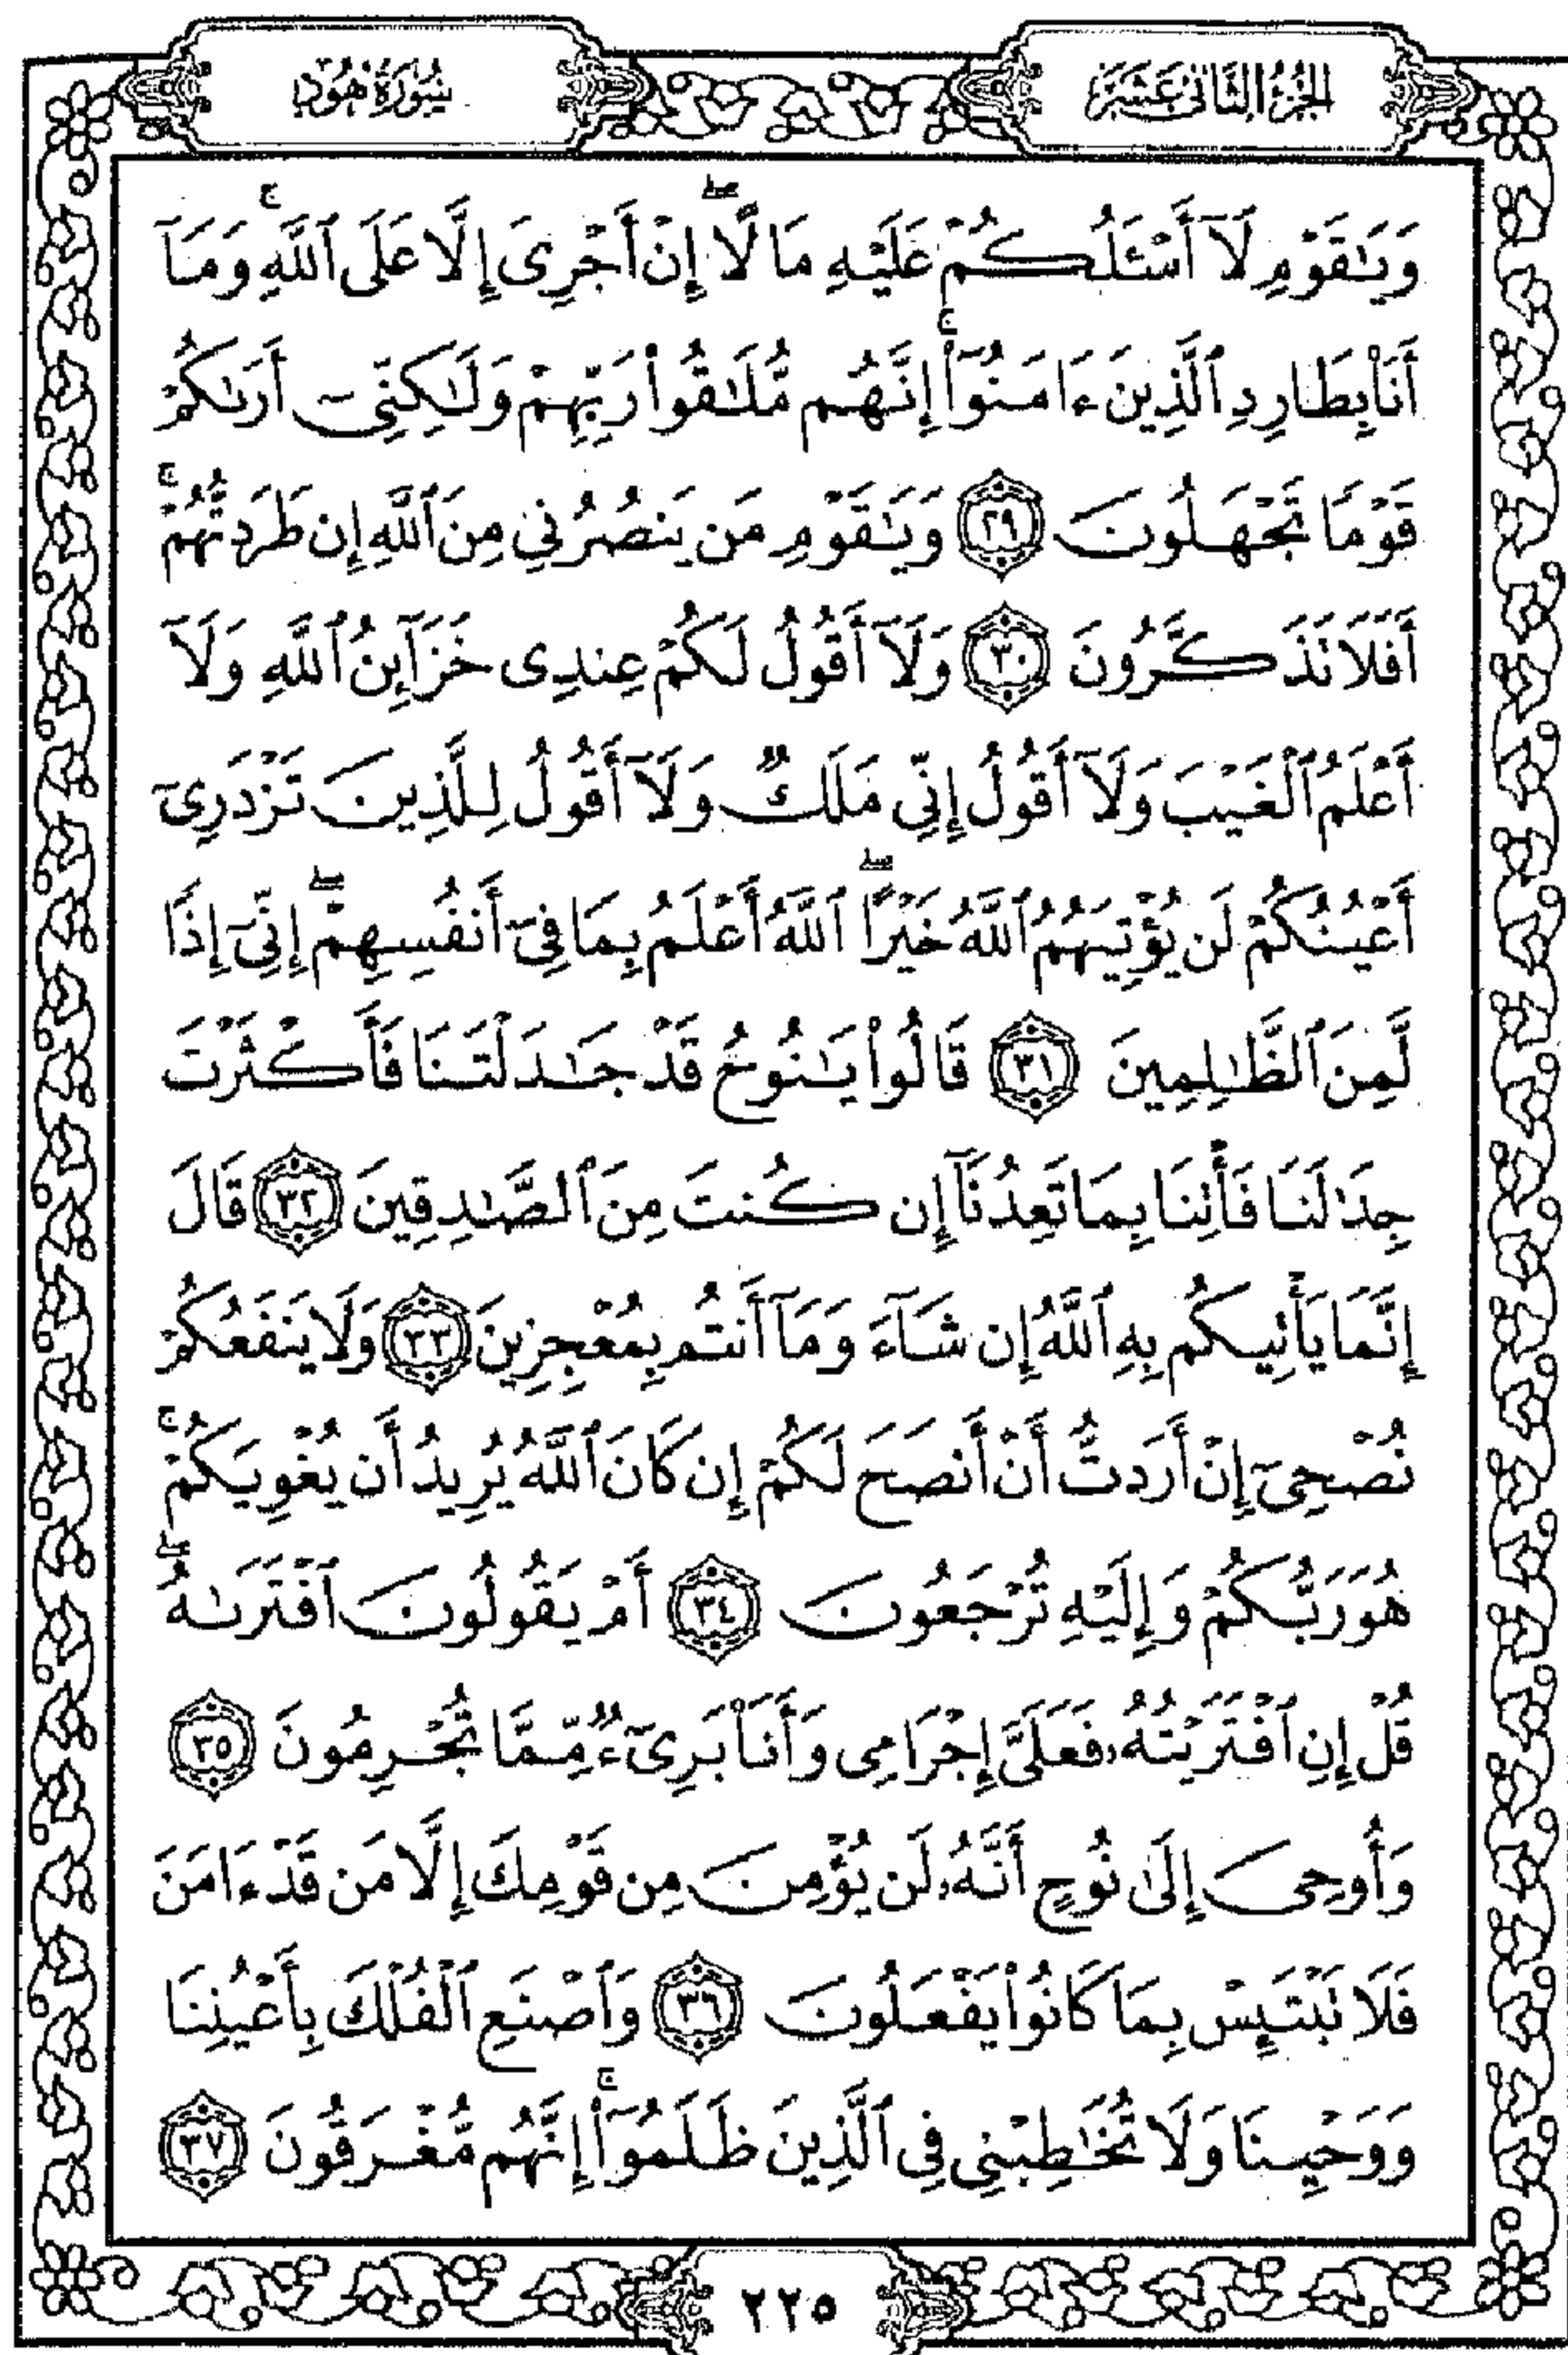 الجزء الثاني عشر
سورة هود
وَيَـٰقَوْمِ لَآ أَسْـَٔلُكُمْ عَلَيْهِ مَالًا ۖ إِنْ أَجْرِىَ إِلَّا عَلَى ٱللَّهِ ۚ وَمَآ
أَنَا۠ بِطَارِدِ ٱلَّذِينَ ءَامَنُوٓا۟ ۚ إِنَّهُم مُّلَـٰقُوا۟ رَبِّهِمْ وَلَـٰكِنِّىٓ أَرَىٰكُمْ
قَوْمًا تَجْهَلُونَ ٢٩ وَيَـٰقَوْمِ مَن يَنصُرُنِى مِنَ ٱللَّهِ إِن طَرَدتُّهُمْ ۚ
أَفَلَا تَذَكَّرُونَ ٣٠ وَلَآ أَقُولُ لَكُمْ عِندِى خَزَآئِنُ ٱللَّهِ وَلَآ
أَعْلَمُ ٱلْغَيْبَ وَلَآ أَقُولُ إِنِّى مَلَكٌ وَلَآ أَقُولُ لِلَّذِينَ تَزْدَرِىٓ
أَعْيُنُكُمْ لَن يُؤْتِيَهُمُ ٱللَّهُ خَيْرًا ۖ ٱللَّهُ أَعْلَمُ بِمَا فِىٓ أَنفُسِهِمْ ۖ إِنِّىٓ إِذًا
لَّمِنَ ٱلظَّـٰلِمِينَ ٣١ قَالُوا۟ يَـٰنُوحُ قَدْ جَـٰدَلْتَنَا فَأَكْثَرْتَ
جِدَٰلَنَا فَأْتِنَا بِمَا تَعِدُنَآ إِن كُنتَ مِنَ ٱلصَّـٰدِقِينَ ٣٢ قَالَ
إِنَّمَا يَأْتِيكُم بِهِ ٱللَّهُ إِن شَآءَ وَمَآ أَنتُم بِمُعْجِزِينَ ٣٣ وَلَا يَنفَعُكُمْ
نُصْحِىٓ إِنْ أَرَدتُّ أَنْ أَنصَحَ لَكُمْ إِن كَانَ ٱللَّهُ يُرِيدُ أَن يُغْوِيَكُمْ ۚ
هُوَ رَبُّكُمْ وَإِلَيْهِ تُرْجَعُونَ ٣٤ أَمْ يَقُولُونَ ٱفْتَرَىٰهُ ۖ
قُلْ إِنِ ٱفْتَرَيْتُهُۥ فَعَلَىَّ إِجْرَامِى وَأَنَا۠ بَرِىٓءٌ مِّمَّا تُجْرِمُونَ ٣٥
وَأُوحِىَ إِلَىٰ نُوحٍ أَنَّهُۥ لَن يُؤْمِنَ مِن قَوْمِكَ إِلَّا مَن قَدْ ءَامَنَ
فَلَا تَبْتَئِسْ بِمَا كَانُوا۟ يَفْعَلُونَ ٣٦ وَٱصْنَعِ ٱلْفُلْكَ بِأَعْيُنِنَا
وَوَحْيِنَا وَلَا تُخَـٰطِبْنِى فِى ٱلَّذِينَ ظَلَمُوٓا۟ ۚ إِنَّهُم مُّغْرَقُونَ ٣٧
٢٢٥